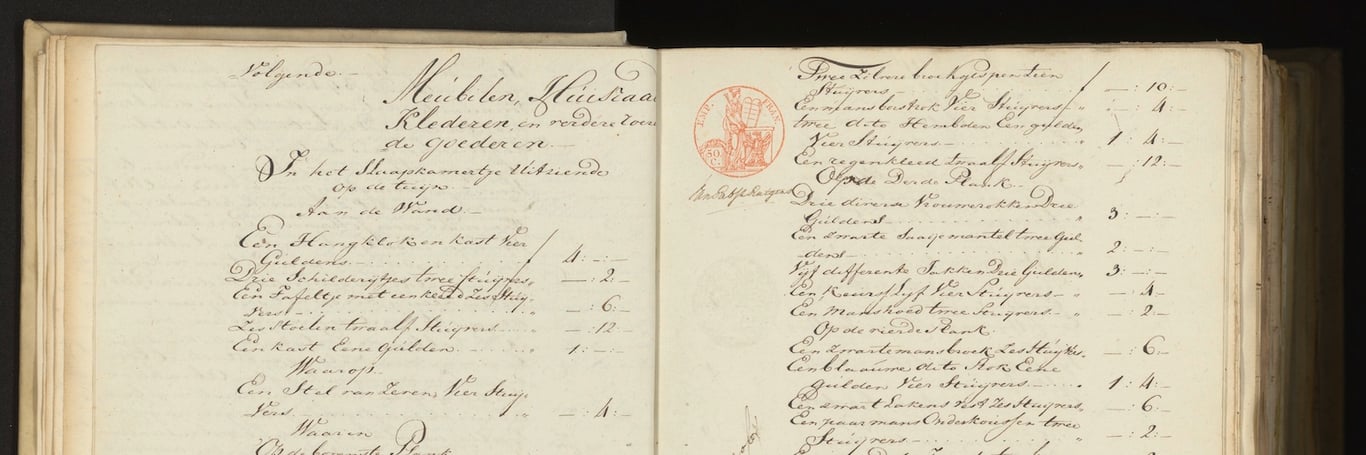 Volgende. -
Meubilen, Huisraad
Klederen, en verdere roeren
de goederen. -
In het Slaapkamertje Uitziende
op de tuijn. -
Aan de Wand. -
Een Hangklok en kast Vier
Guldens. 4:-:-
Drie Schilderijtjes twee Stuijvers -:2:-
Een Tafeltje met een kleed Zes Stuij-
vers -:6:-
Zes Stoelen twaalf Stuijvers -:12:-
Een kast Eene Gulden. 1:-:-
Waarop.
Een Stel van Zeven, Vier Stuij-
vers -:4:-
Waarin
Op de bovenste Plank
EMP. FRAN.
50 C.
Twee Zilvere broekgespen tien
Stuijvers -:10:-
Een mans borstrok Vier Stuijvers -:4:-
twee dito Hembden Een gulden
Vier Stuijvers 1:4:-
Een regenkleed twaalf Stuijvers -:12:-
Op de Derde Plank.
Drie diverse Vrouwerokken Drie
Guldens 3:-:-
Een zwarte Saaije mantel twee Gul-
dens 2:-:-
Vijf differente Jakken Drie Guldens 3:-:-
Een Keurslyf Vier Stuijvers -:4-
Een Manshoed twee Stuijvers -:2-
Op de vierde Plank.
Een zwarte mansbroek Zes Stuijvers -:6:-
Een blaauwe dito Rok Eene
Gulden Vier Stuijvers 1:4:-
Een zwart Lakens Vest Zes Stuijvers -:6-
Een paar mans Onderkousen twee
Stuijvers -:2:-